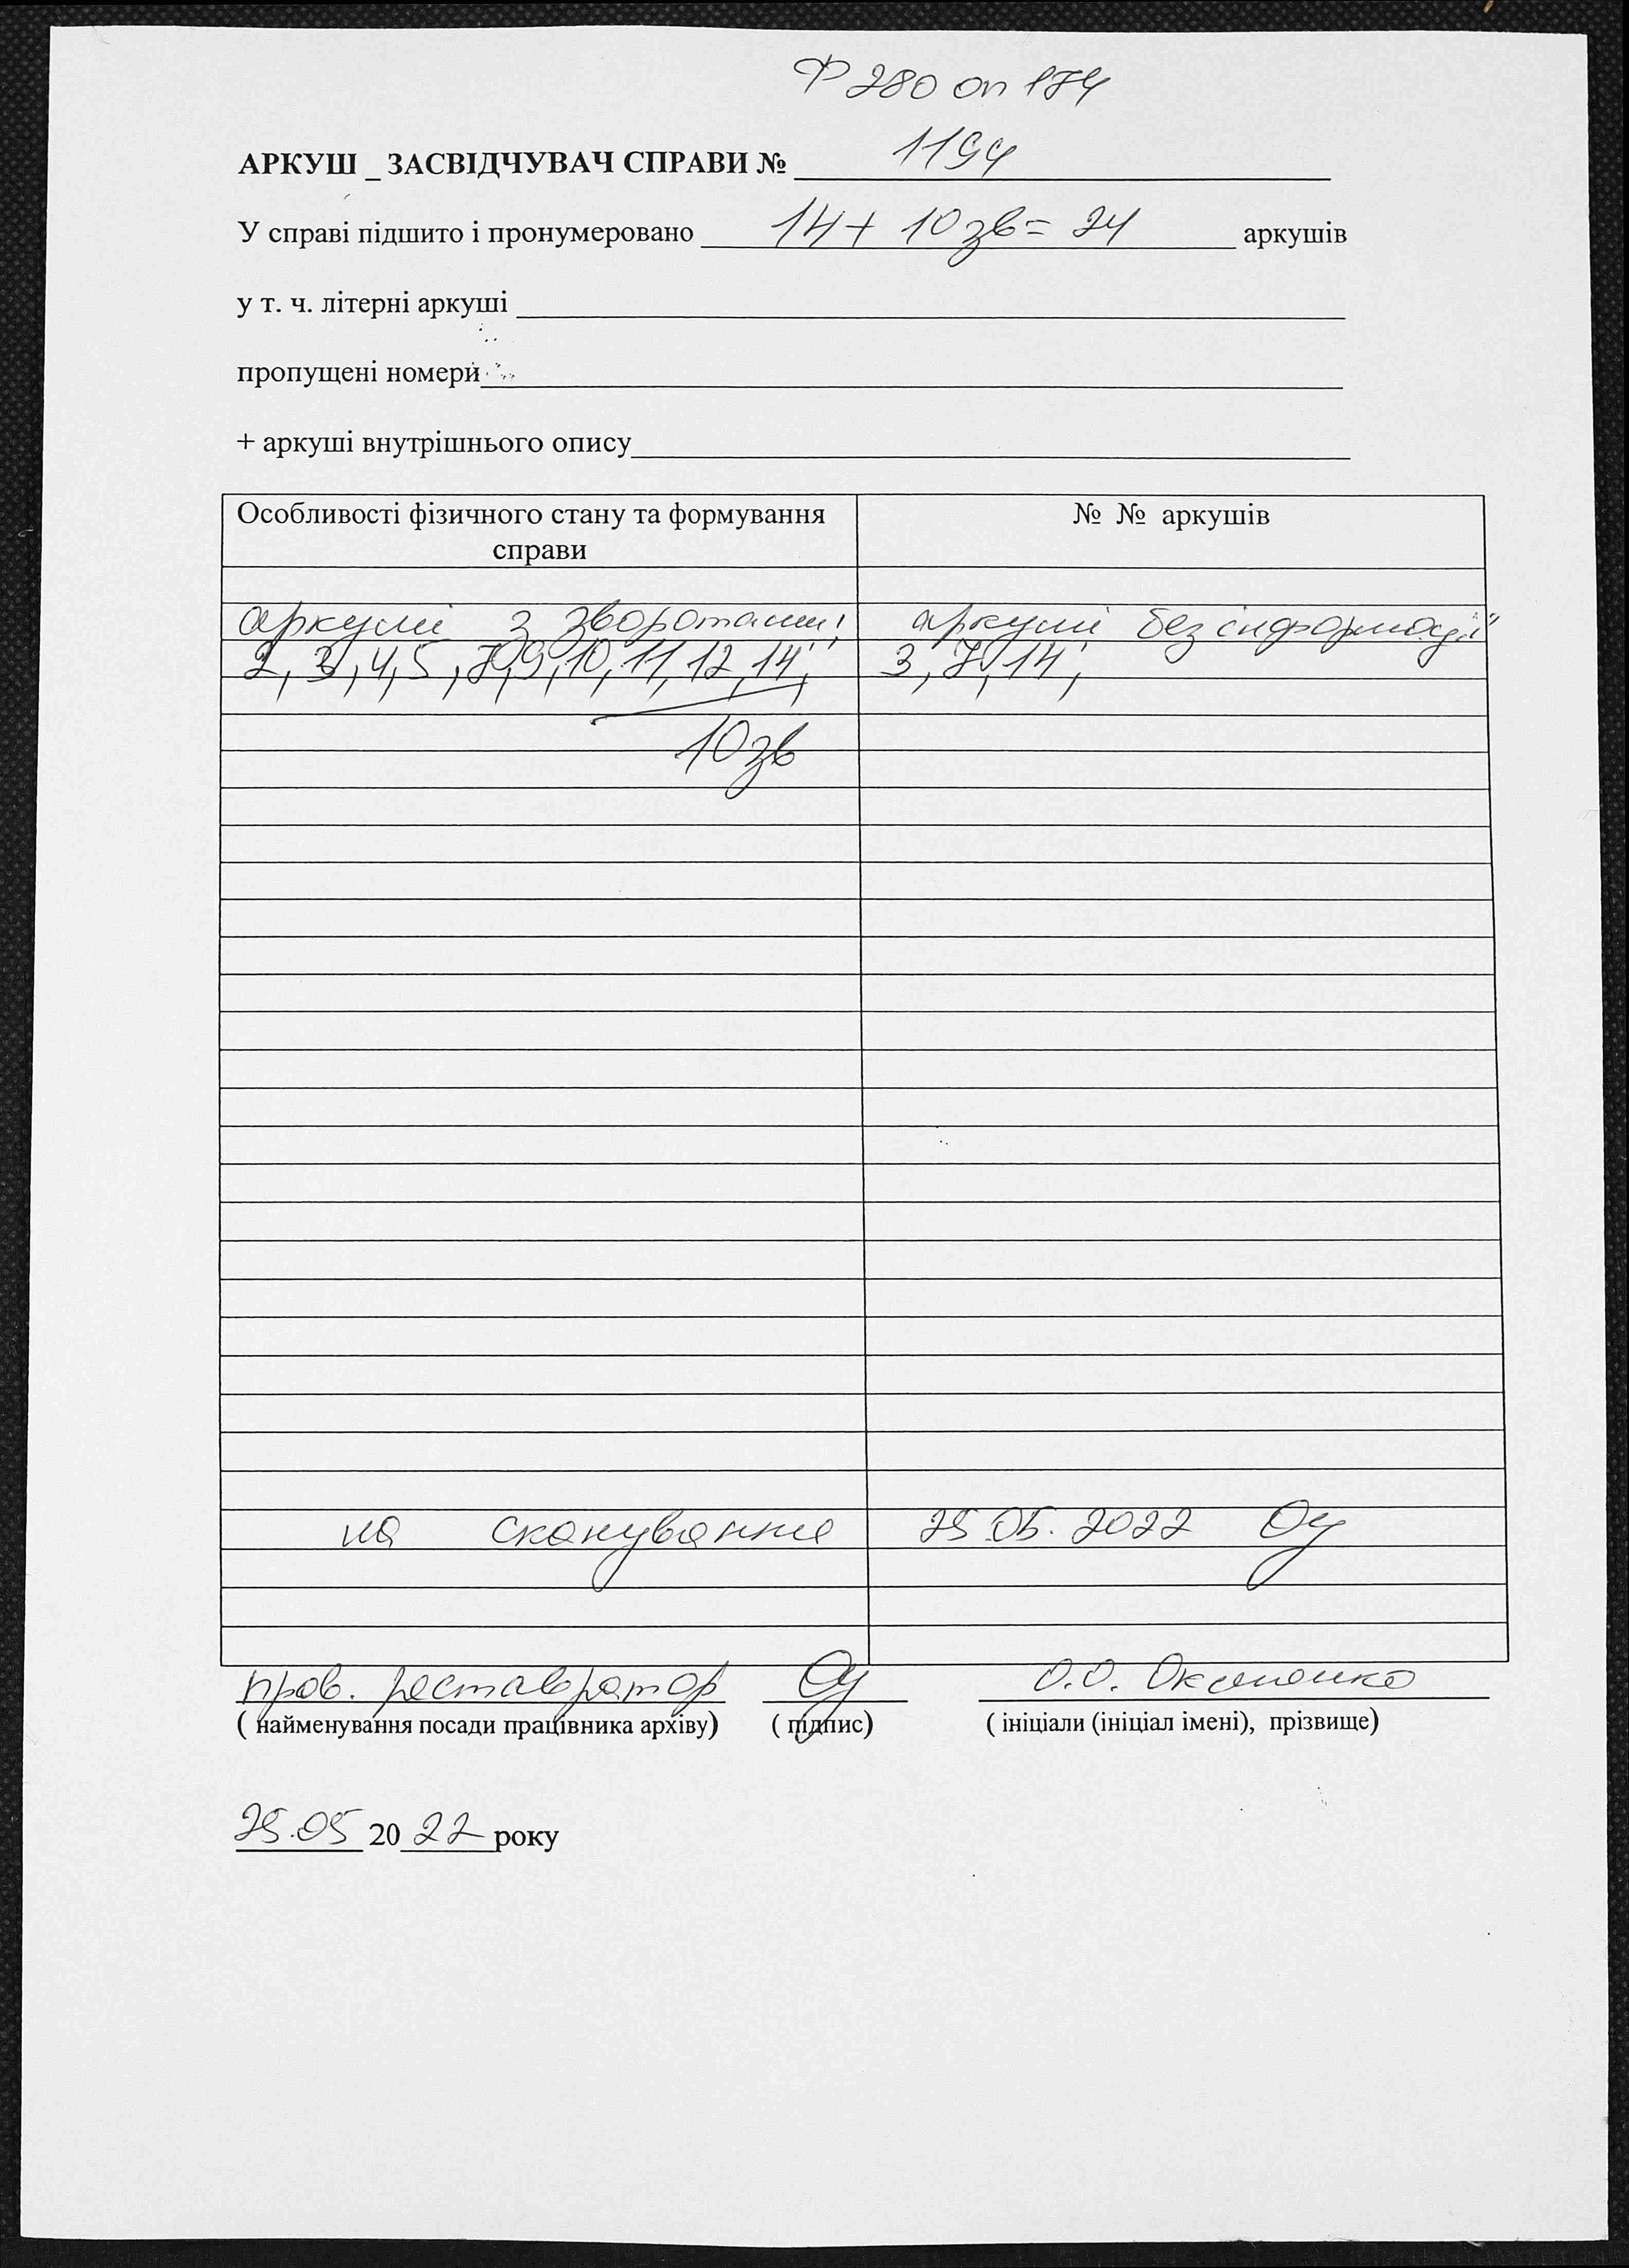 Ф 280 оп 174
АРКУШ _ ЗАСВІДЧУВАЧ СПРАВИ № 1194
У справі підшито і пронумеровано 14 + 10 зв = 24 аркушів
у т. ч. літерні аркуші
пропущені номери
+ аркуші внутрішнього опису
Особливості фізичного стану та формування справи № № аркушів
аркуші з зворотами: аркуші без інформації"
2, 3, 4, 5, 7, 9, 10, 11, 12, 14; 3, 7, 14;
10 зв
на сканування 25.05.2022
пров. реставратор О.О.
( найменування посади працівника архіву) ( підпис) ( ініціали (ініціал імені), прізвище)
25.05 20 22 року